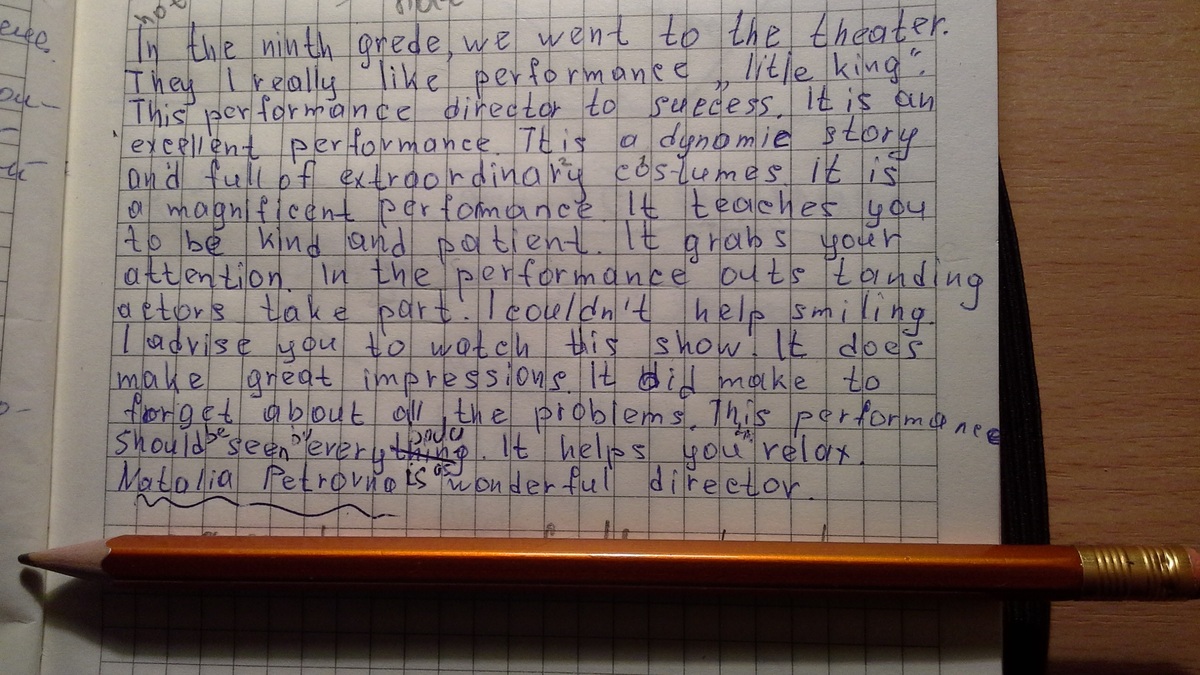 not
In the ninth grede, we went to the theater.
They I really like performance „litle king".
This performance director to suecess. It is an
excellent performance. It is a dynamie story
and full of extraordinary costumes. It is
a magnificent perfomance. It teaches you
to be kind and patient. It grabs your
attention. In the performance outstanding
actors take part. I couldn't help smiling.
I advise you to watch this show. It does
make great impressions. It did make to
forget about all the problems. This performance
should be seen by everybody. It helps you relax.
Natalia Petrovna is as wonderful director.